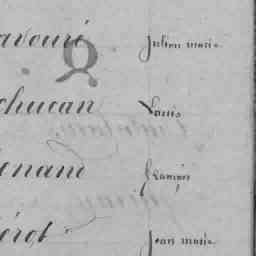 avouré Julien marie
Q
chucan Louis
enand François
érot Jean marie